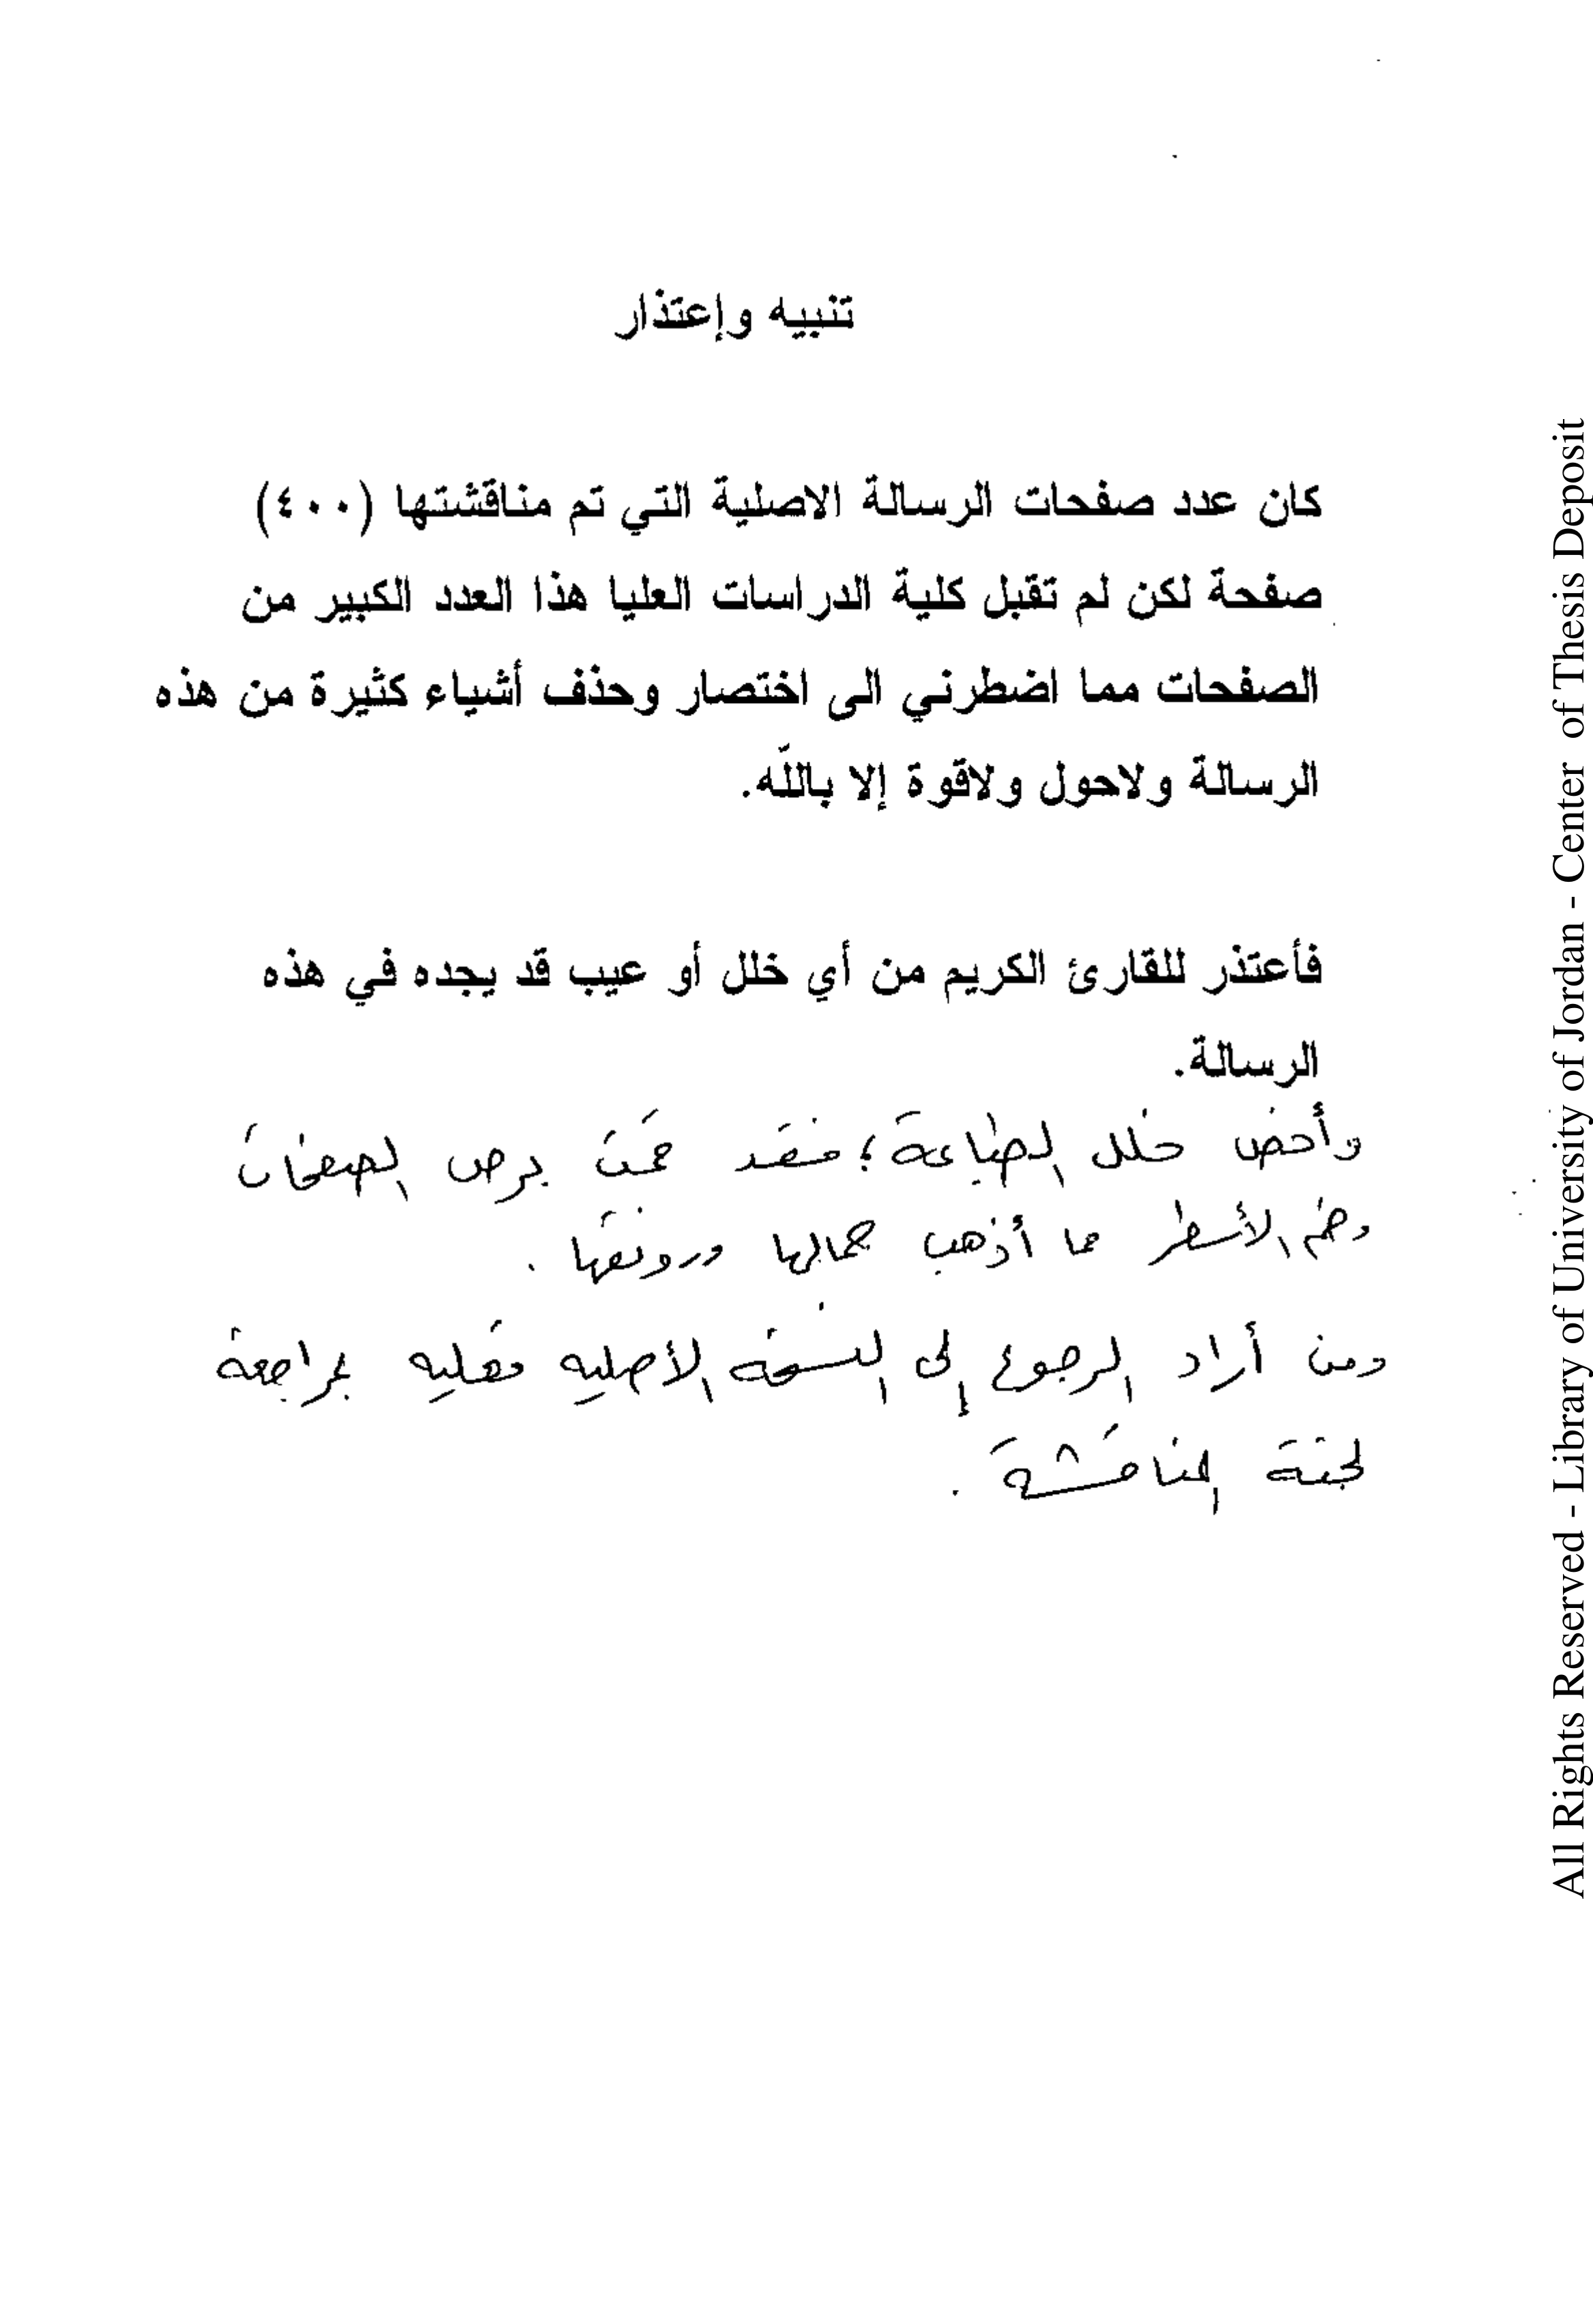 تنبيه وإعتذار
كان عدد صفحات الرسالة الاصلية التي تم مناقشتها (٤٠٠)
صفحة لكن لم تقبل كلية الدراسات العليا هذا العدد الكبير من
الصفحات مما اضطرني الى اختصار وحذف أشياء كثيرة من هذه
الرسالة ولاحول ولاقوة إلا بالله.
فأعتذر للقارئ الكريم من أي خلل أو عيب قد يجده في هذه
الرسالة.
وأخص خلل الطباعة؛ فقد قمت برص الصفحات
وضم الأسطر مما أذهب جمالها ورونقها.
ومن أراد الرجوع إلى النسخة الأصلية فعليه بمراجعة
لجنة المناقشة.
All Rights Reserved - Library of University of Jordan - Center of Thesis Deposit